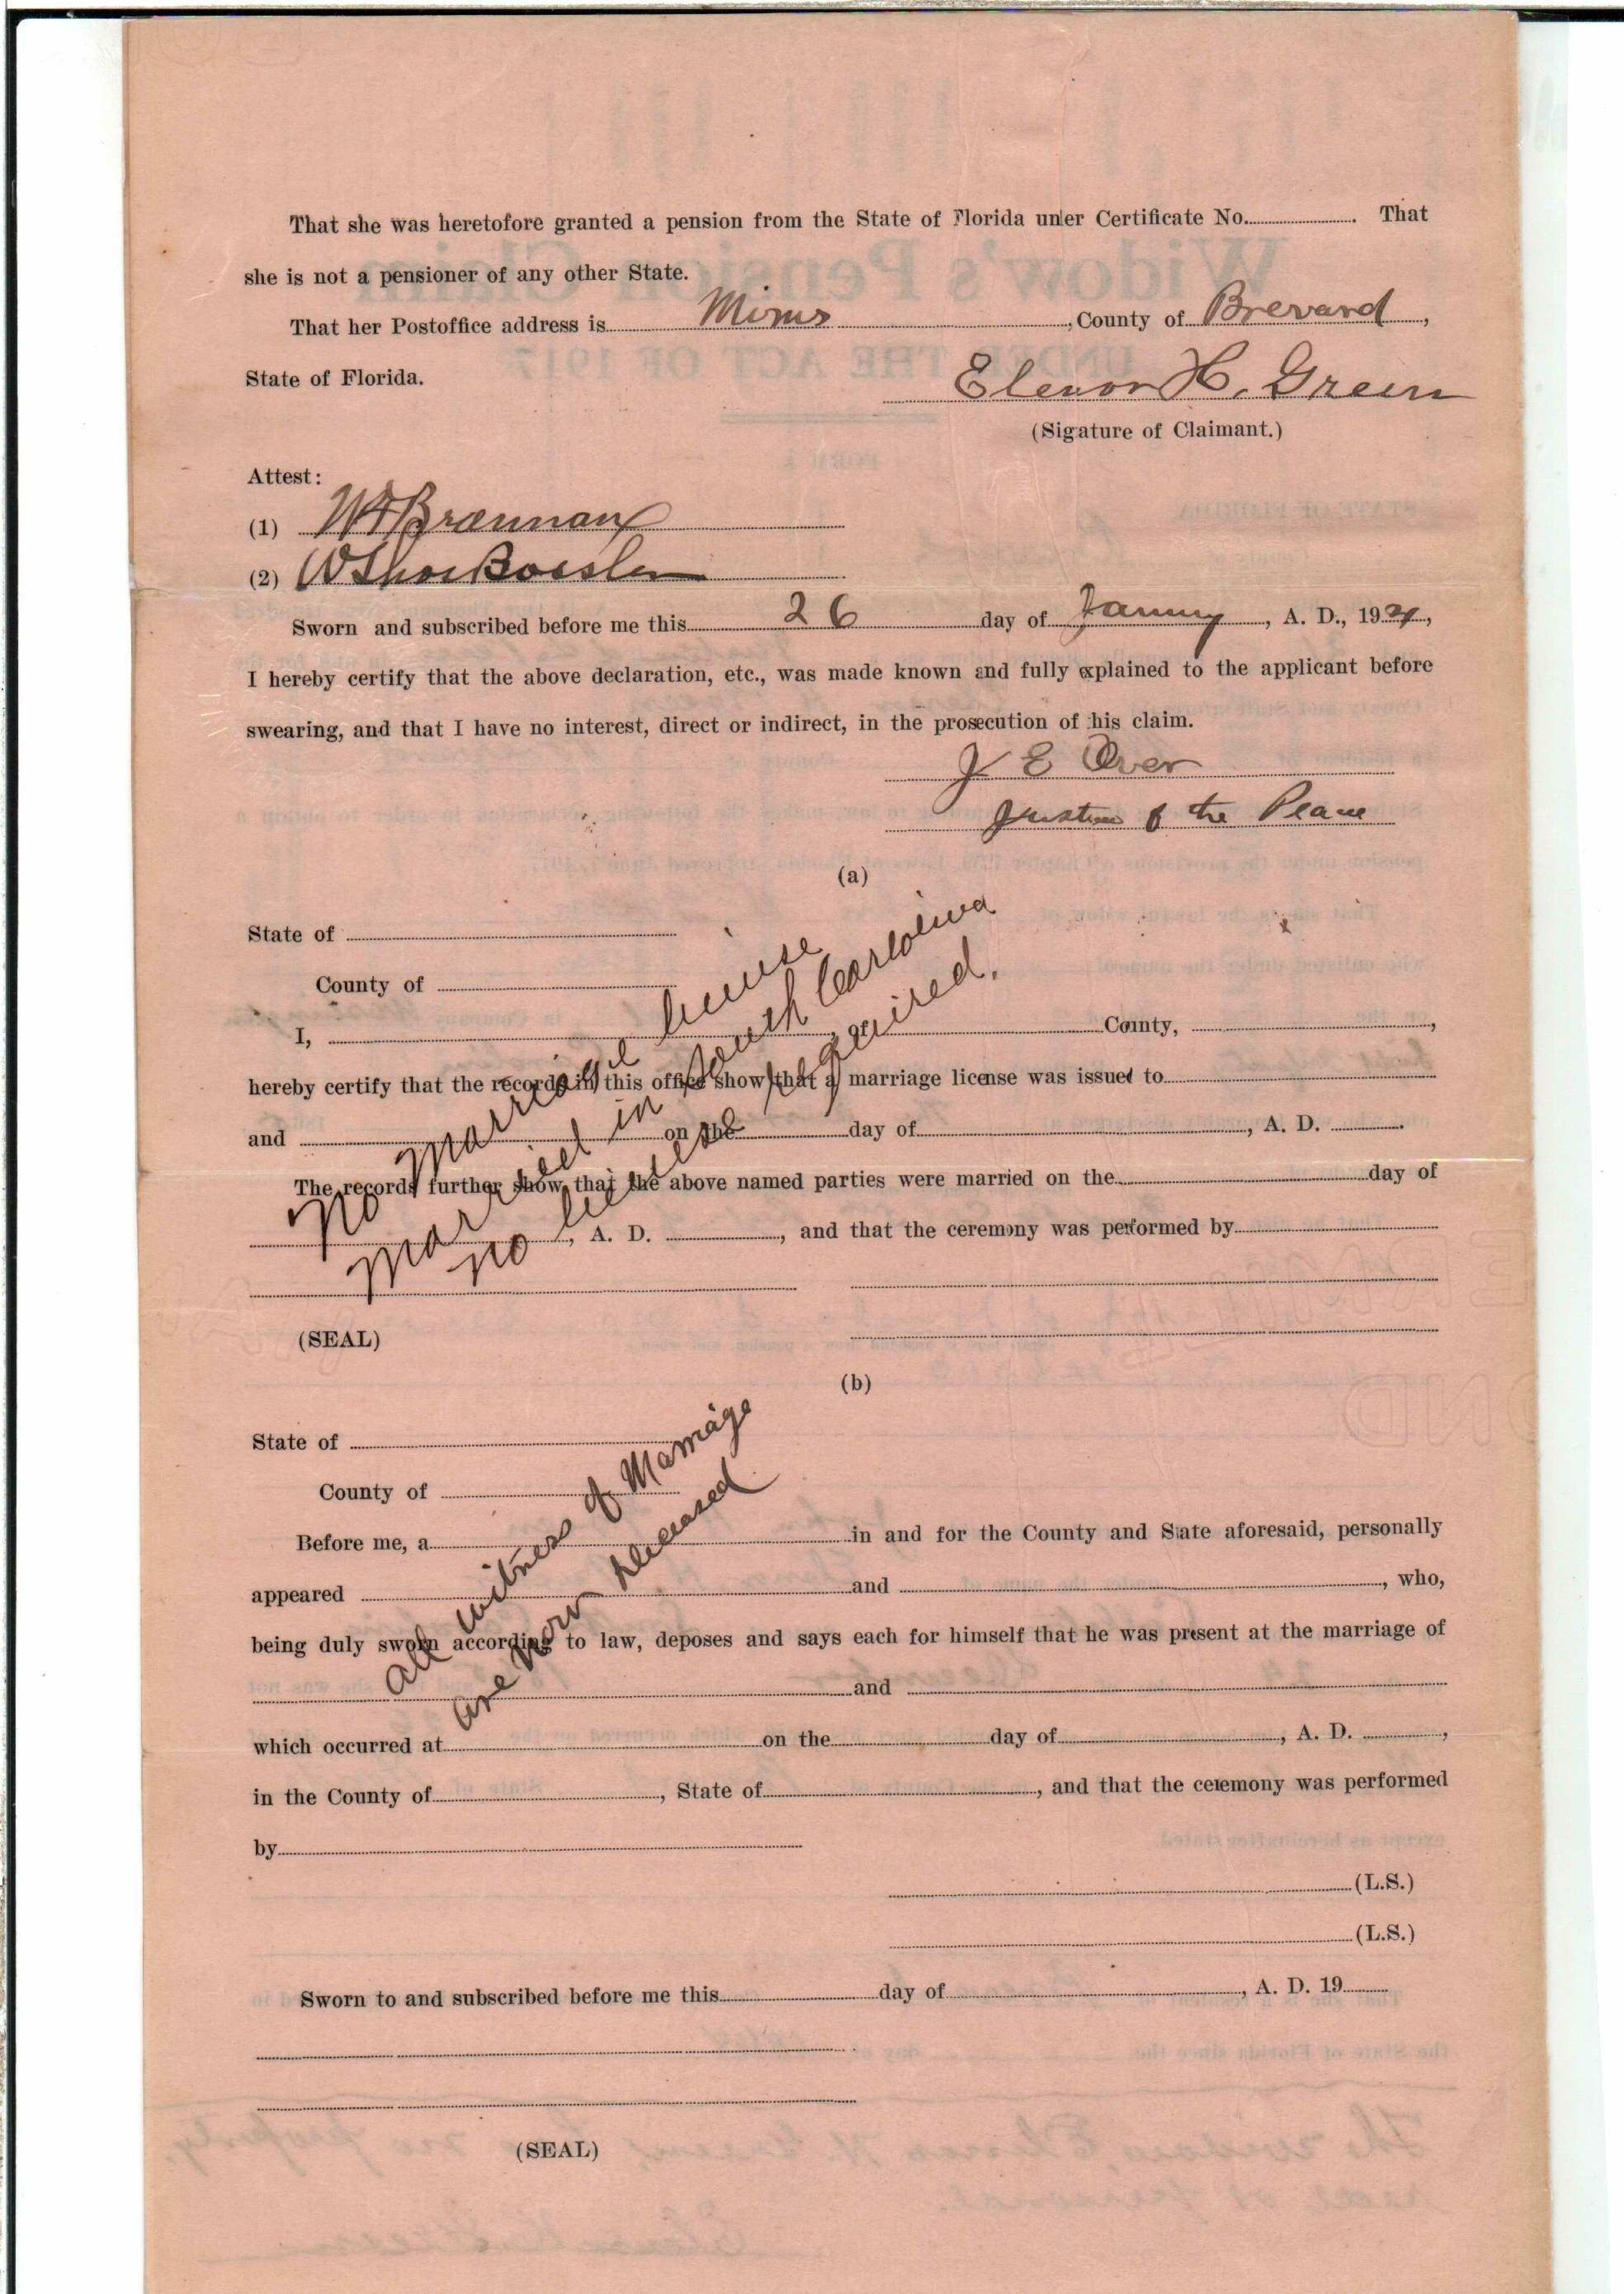 That she was heretofore granted a pension from the State of Florida under Certificate No. . That
she is not a pensioner of any other State.
That her Postoffice address is Mims , County of Brevard ,
State of Florida.
Elenor H. Green
(Sigature of Claimant.)
Attest:
(1) W Brannan
(2)
Sworn and subscribed before me this 26 day of January , A. D., 19 ,
I hereby certify that the above declaration, etc., was made known and fully explained to the applicant before
swearing, and that I have no interest, direct or indirect, in the prosecution of this claim.
J E
Justice of the Peace
(a)
State of
County of
I, , of County, ,
hereby certify that the records in this office show that a marriage license was issued to
and on the day of , A. D. .
The records further show that the above named parties were married on the day of
, A. D. , and that the ceremony was performed by
No marriage license
married in South Carloina
no license required.
(SEAL)
(b)
State of
County of
Before me, a in and for the County and State aforesaid, personally
appeared and , who,
being duly sworn according to law, deposes and says each for himself that he was present at the marriage of
and
All witness of Marriage
are now deceased
which occurred at on the day of , A. D. ,
in the County of , State of , and that the ceremony was performed
by
(L.S.)
(L.S.)
Sworn to and subscribed before me this day of , A. D. 19
(SEAL)